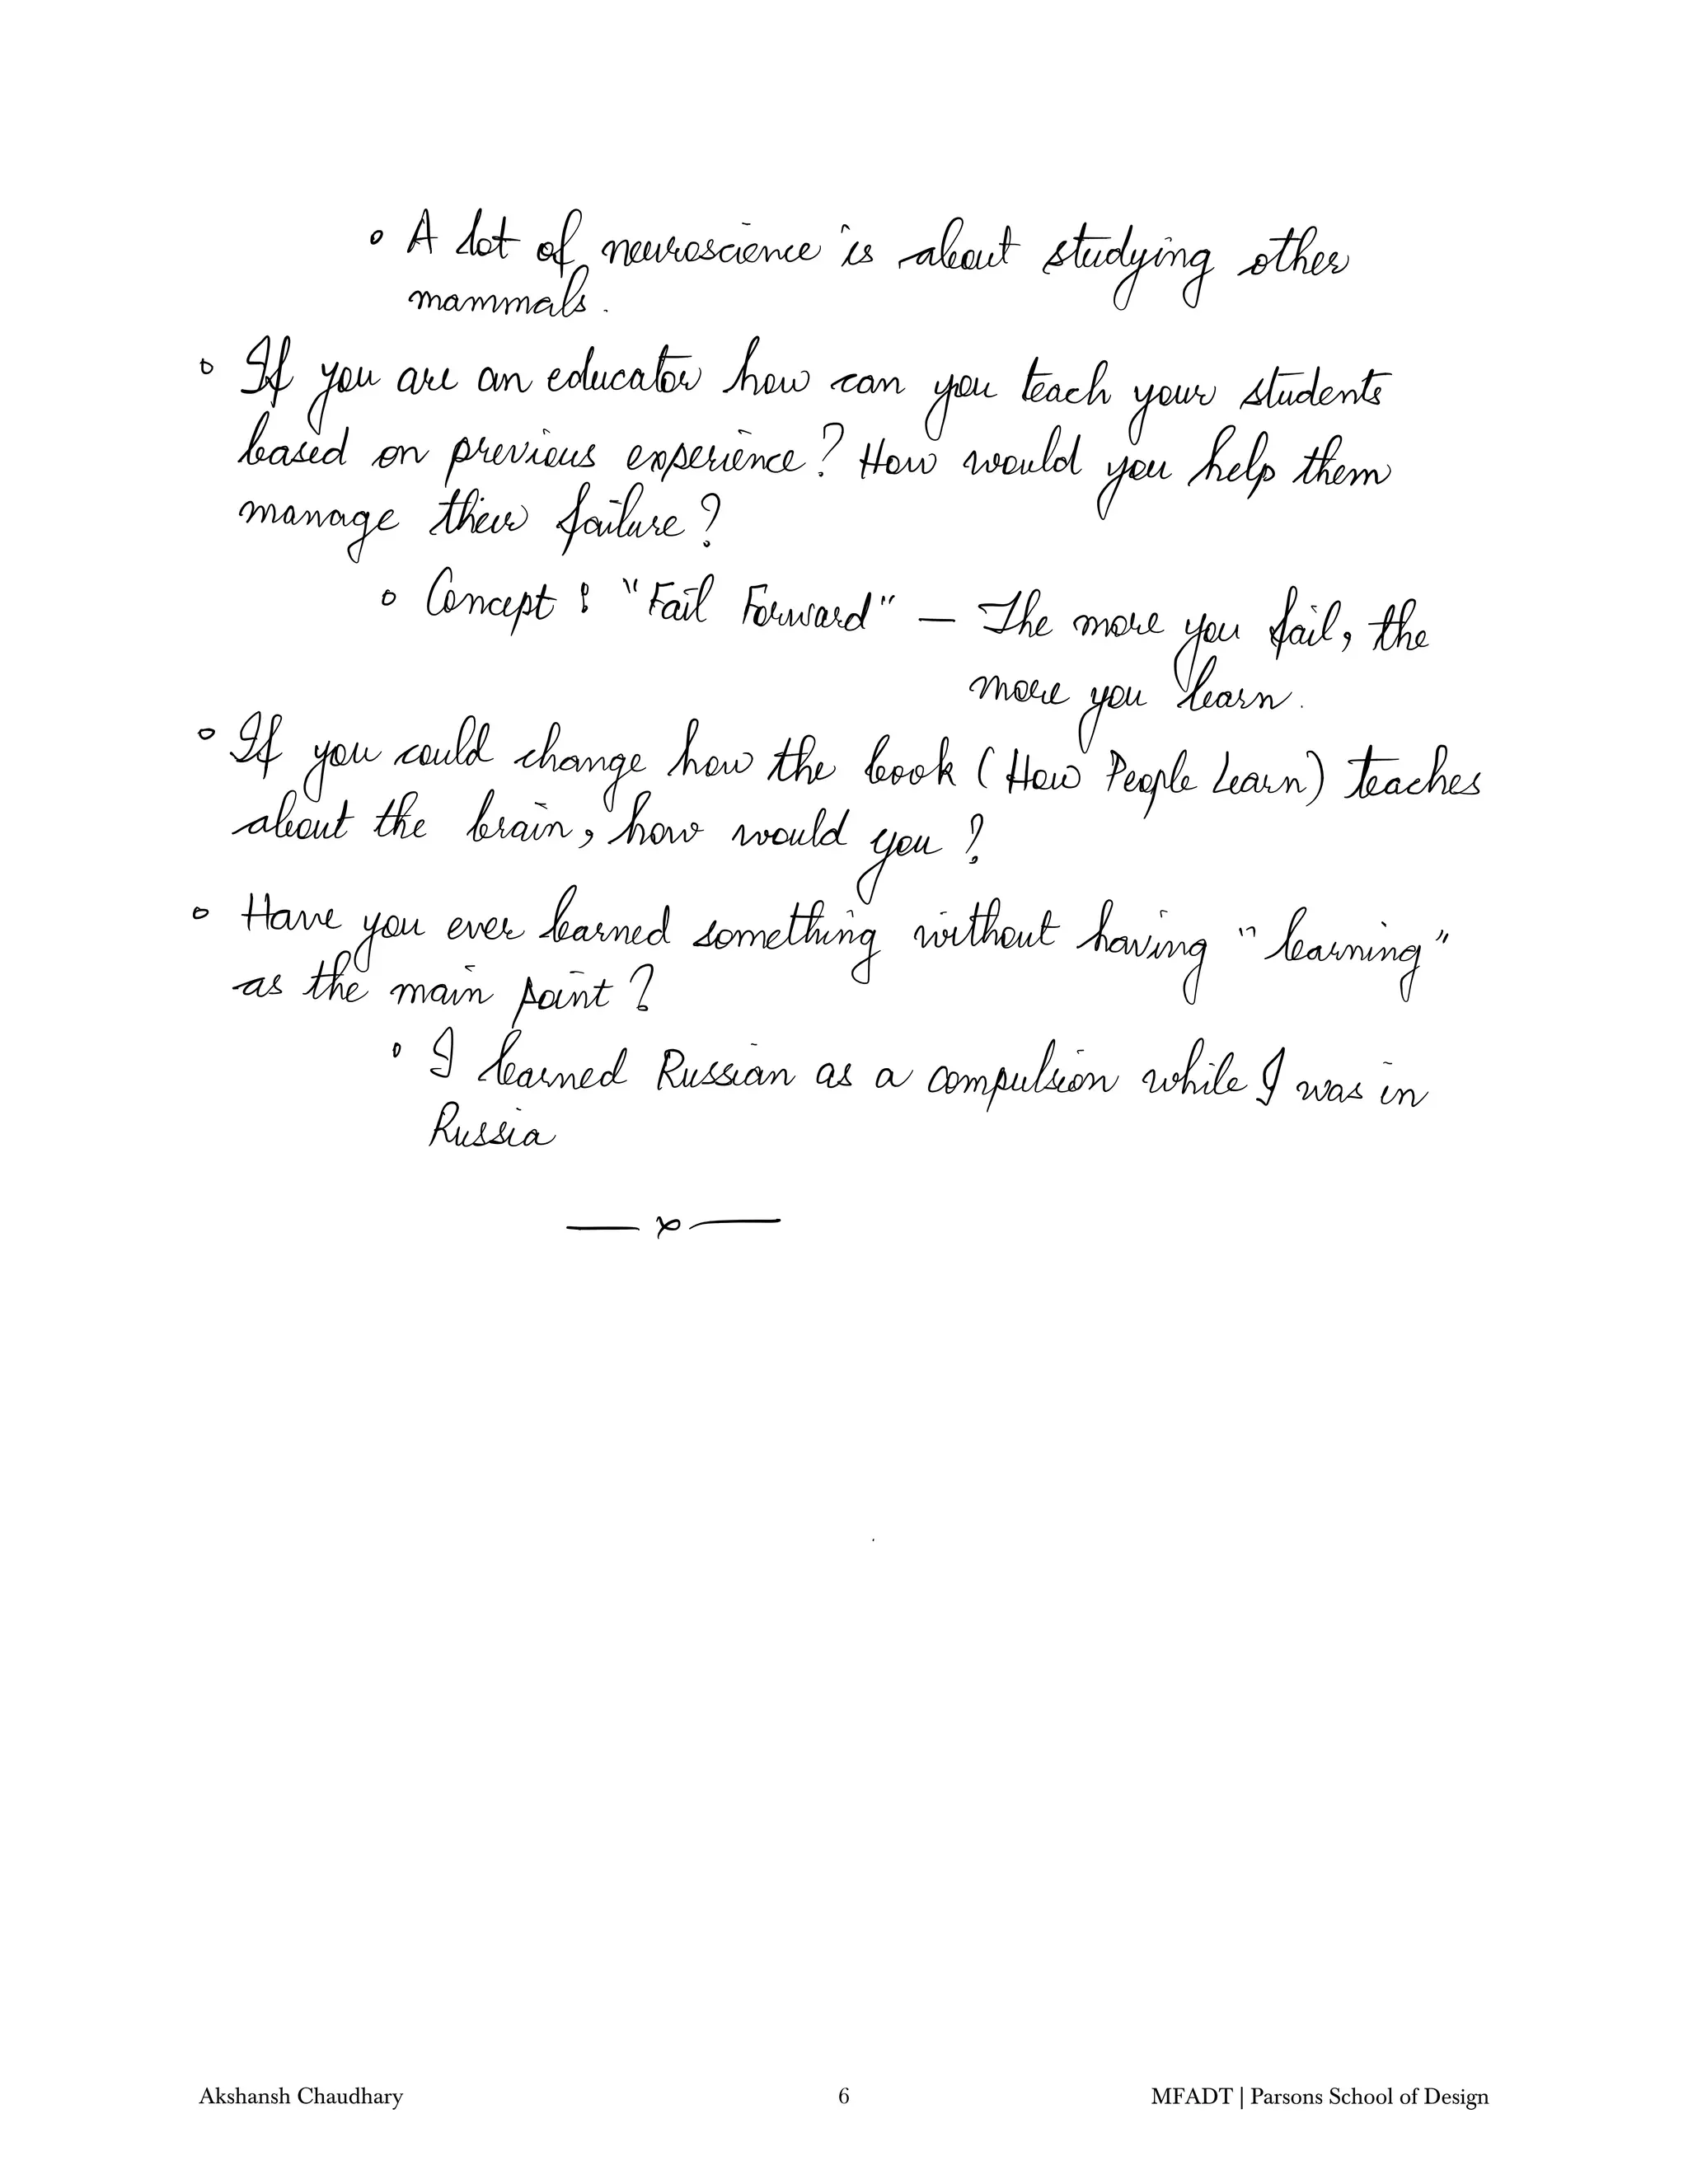 • A lot of neuroscience is about studying other
mammals.
• If you are an educator how can you teach your students
based on previous experience? How would you help them
manage their failure?
• Concept : "Fail Forward" — The more you fail, the
more you learn.
• If you could change how the book (How People Learn) teaches
about the brain, how would you?
• Have you ever learned something without having "learning"
as the main point?
• I learned Russian as a compulsion while I was in
Russia
— x —
Akshansh Chaudhary 6 MFADT | Parsons School of Design